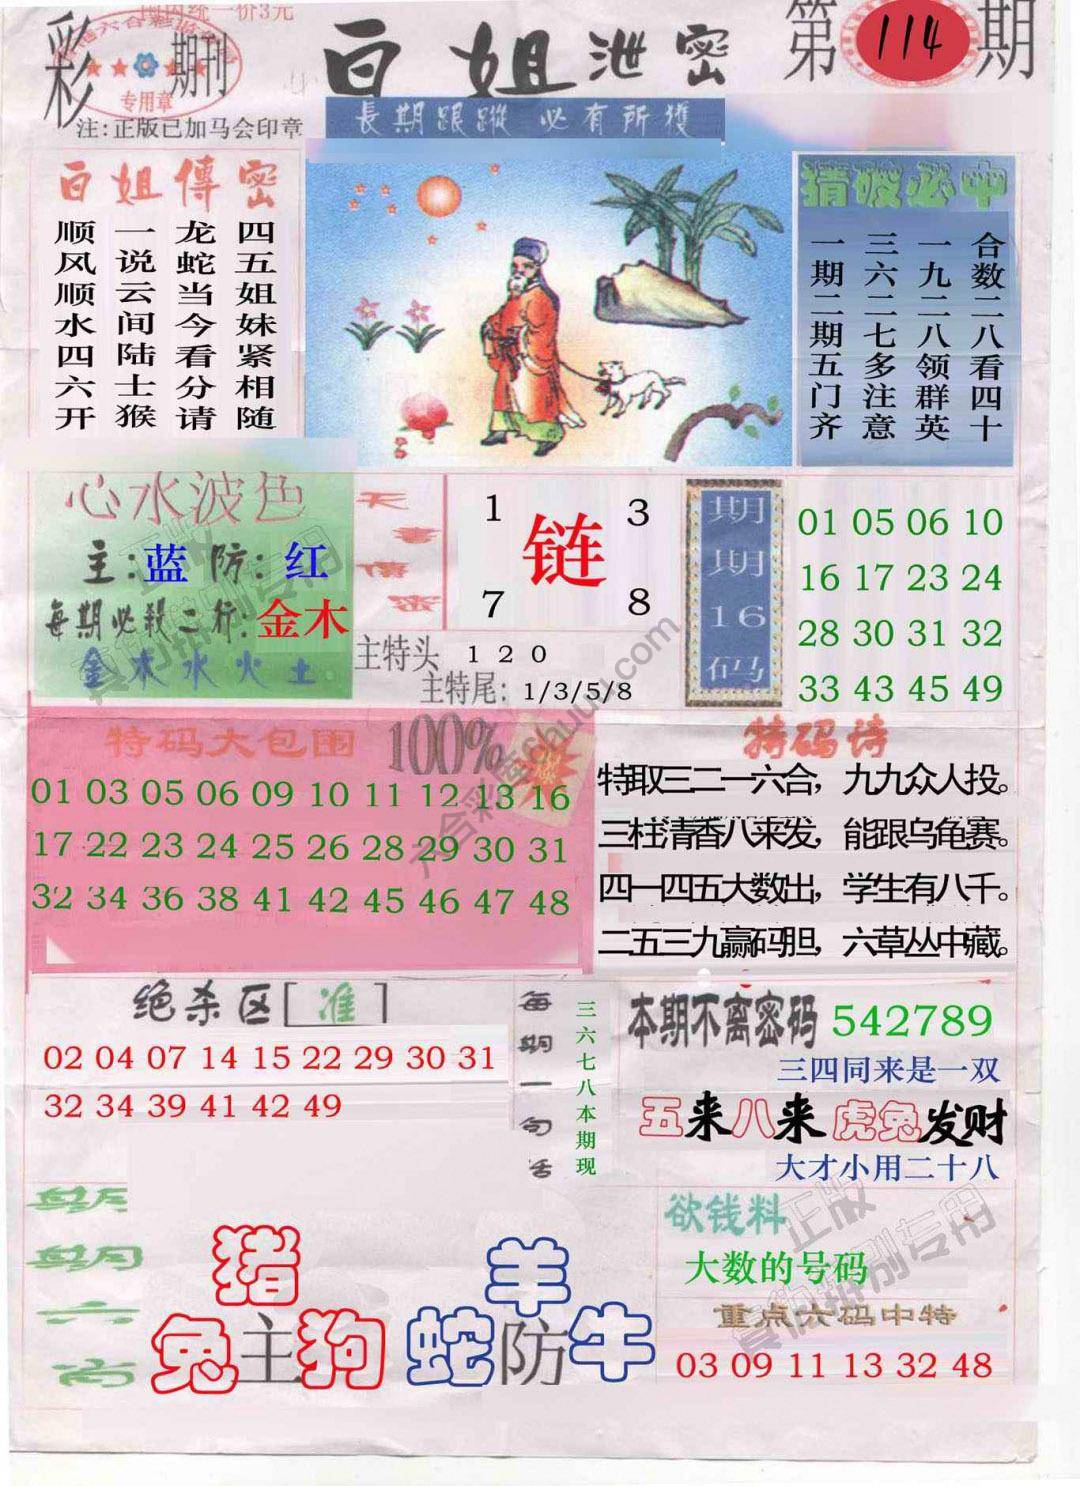 国内统一价3元
彩 期刊
专用章
注:正版已加马会印章
白姐泄密
第114期
長期跟蹤 必有所獲
白姐傳密
四五姐妹紧相随
龙蛇当今看分请
一说云间陆士猴
顺风顺水四六开
猜破必中
合数二八看四十
一九二八领群英
三六二七多注意
一期二期五门齐
心水波色
主:蓝 防:红
每期必殺二行:金木
金木水火土
天書傳密
1 3
链
7 8
主特头 1 2 0
主特尾: 1/3/5/8
期期16码
01 05 06 10
16 17 23 24
28 30 31 32
33 43 45 49
特码大包围
100%
01 03 05 06 09 10 11 12 13 16
17 22 23 24 25 26 28 29 30 31
32 34 36 38 41 42 45 46 47 48
特码诗
特取三二一六合，九九众人投。
三柱清香八来发，能跟乌龟赛。
四一四五大数出，学生有八千。
二五三九赢码担，六草丛中藏。
绝杀区[准]
02 04 07 14 15 22 29 30 31
32 34 39 41 42 49
每期一句话
三六七八本期现
本期不离密码 542789
三四同来是一双
五来八来 虎兔发财
大才小用二十八
期期六肖
猪
兔主狗
羊
蛇防牛
欲钱料
大数的号码
重点六码中特
03 09 11 13 32 48